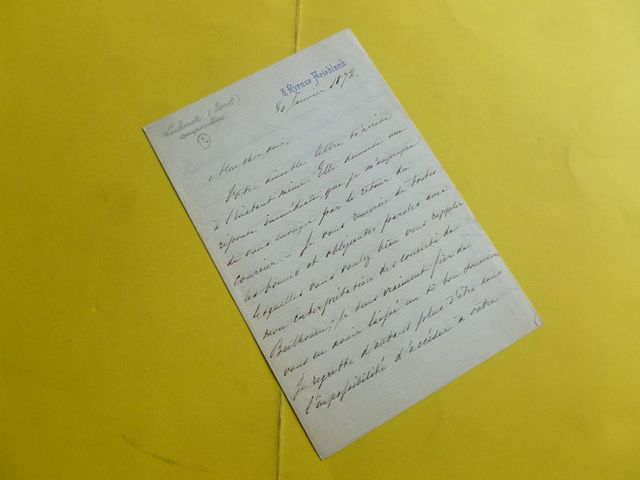 8, Avenue Friedland
30 Janvier 1872.
Lubeck (
compositeur
Mon cher ami,
Votre aimable lettre m'arrive
à l'instant même. Elle demande une
réponse immédiate, que je m'empresse
de vous envoyer par le retour du
courrier. — Je vous remercie de toutes
les bonnes et obligeantes paroles avec
lesquelles vous voulez bien vous rappeler
mon interprétation des concerts de
Beethoven; je suis vraiment fier de
vous en avoir laissé un si bon souvenir
Je regrette d'autant plus d'être dans
l'impossibilité d'accéder à votre